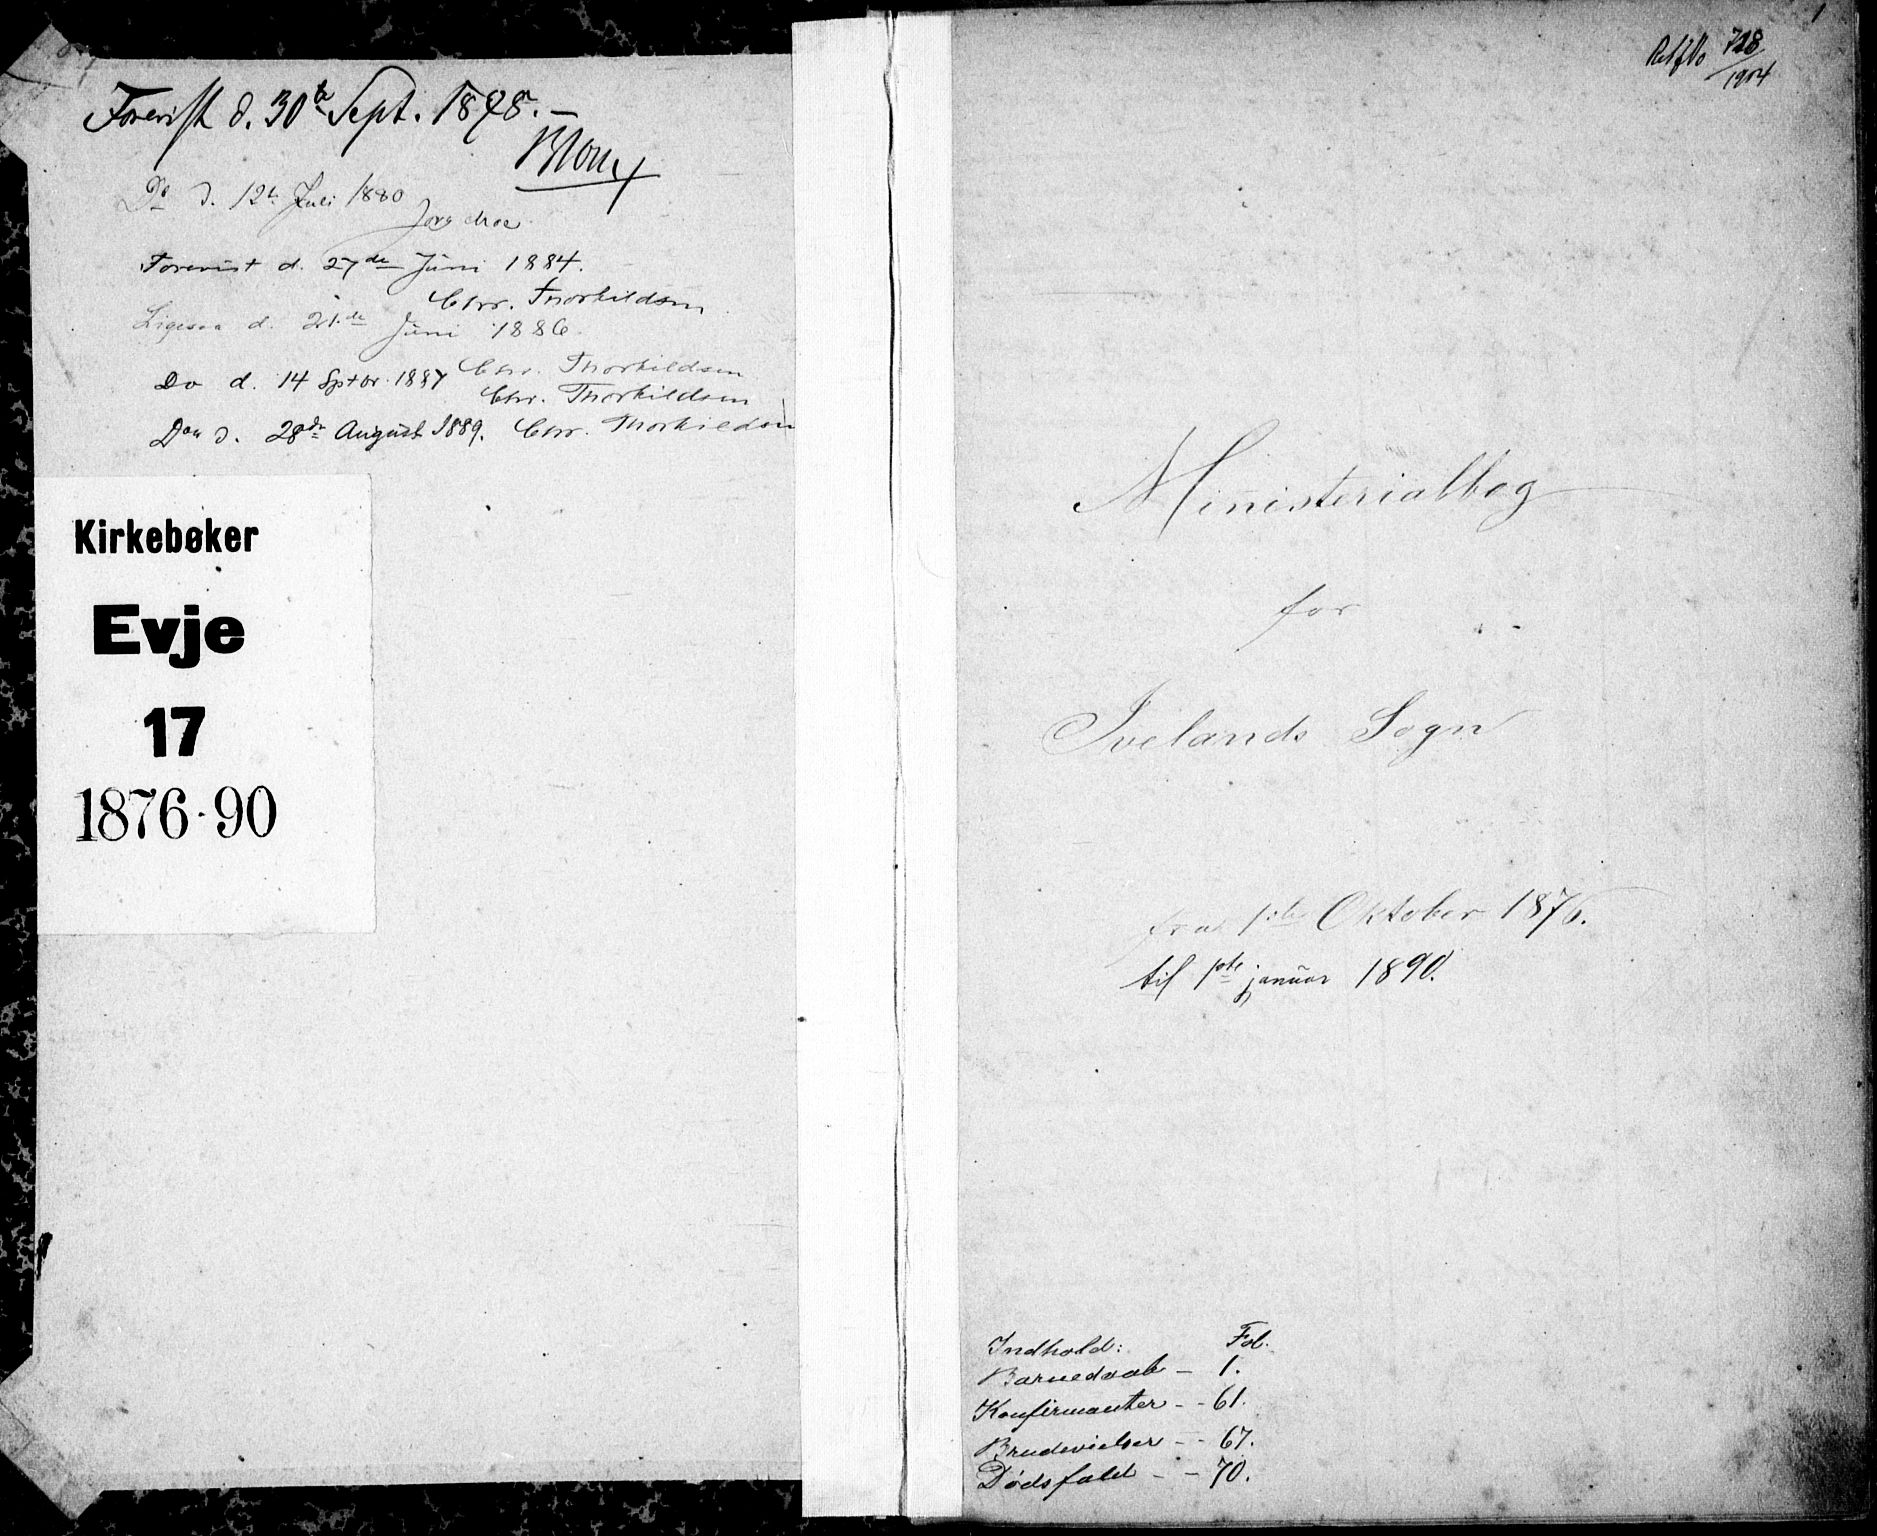 Forevist d. 30te Sept. 1878. —
Do d. 12te Juli 1880
Forevist d. 27de Juni 1884.
Chr. Thorkildsen
Ligesaa d. 21.de Juni 1886
Chr. Thorkildsen
Do d. 14 Sptbr. 1887
Chr. Thorkildsen
Do d. 28de August 1889. Chr. Thorkildsen
Kirkebøker
Evje
17
1876-90
1
718/1904
Ministerialbog
for
Ivelands Sogn
fra 1ste Oktober 1876.
til 1ste januar 1890.
Indhold: Fol.
Barnedaab — 1.
Konfirmanter - - 61.
Brudevielser - - 67.
Dødsfald - - 70.